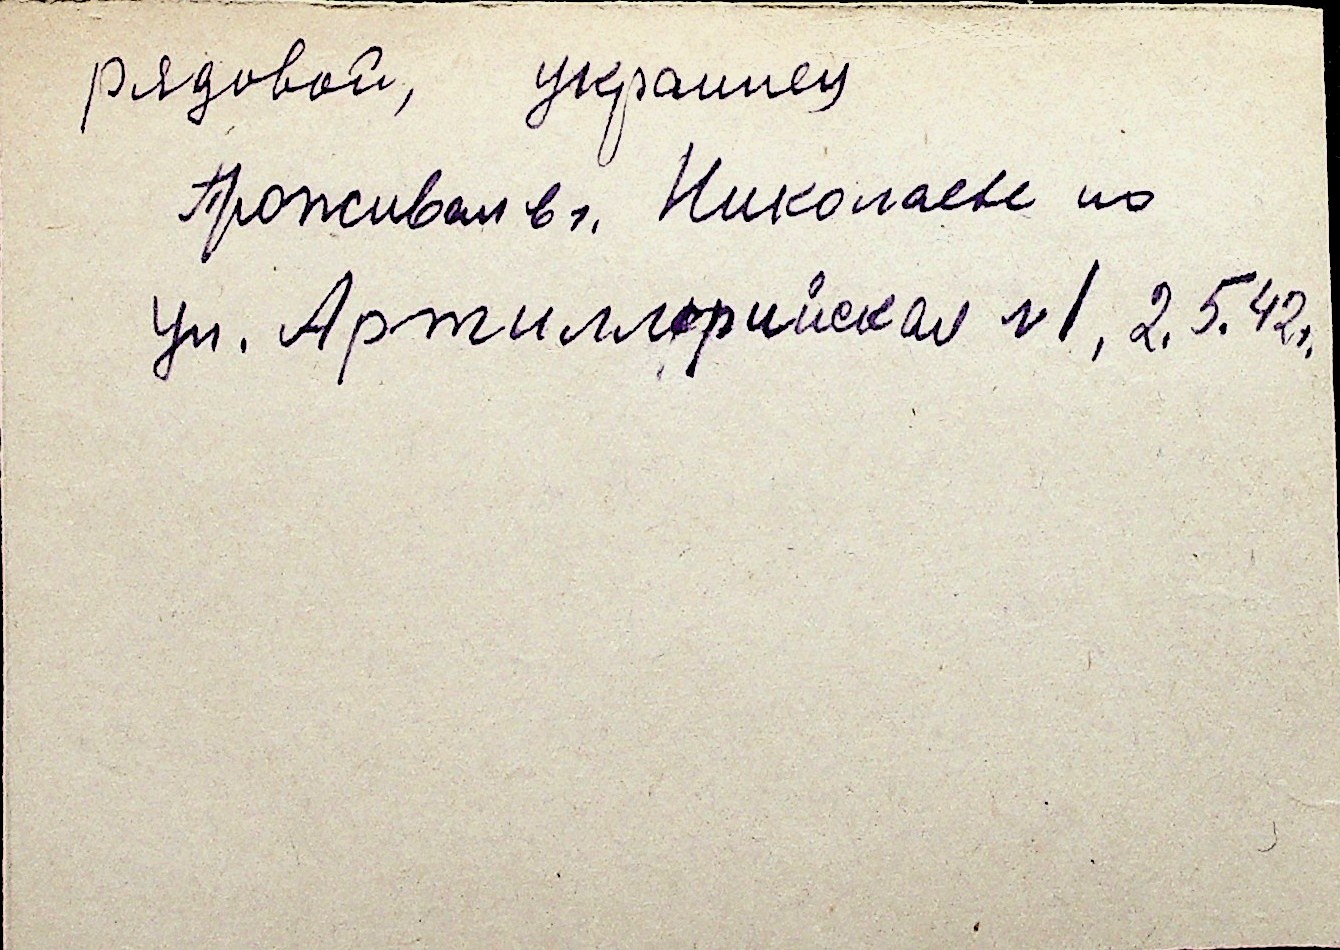 рядовой, украинец
Проживал в г. Николаеве по
ул. Артиллерийская №1, 2.5.42г.